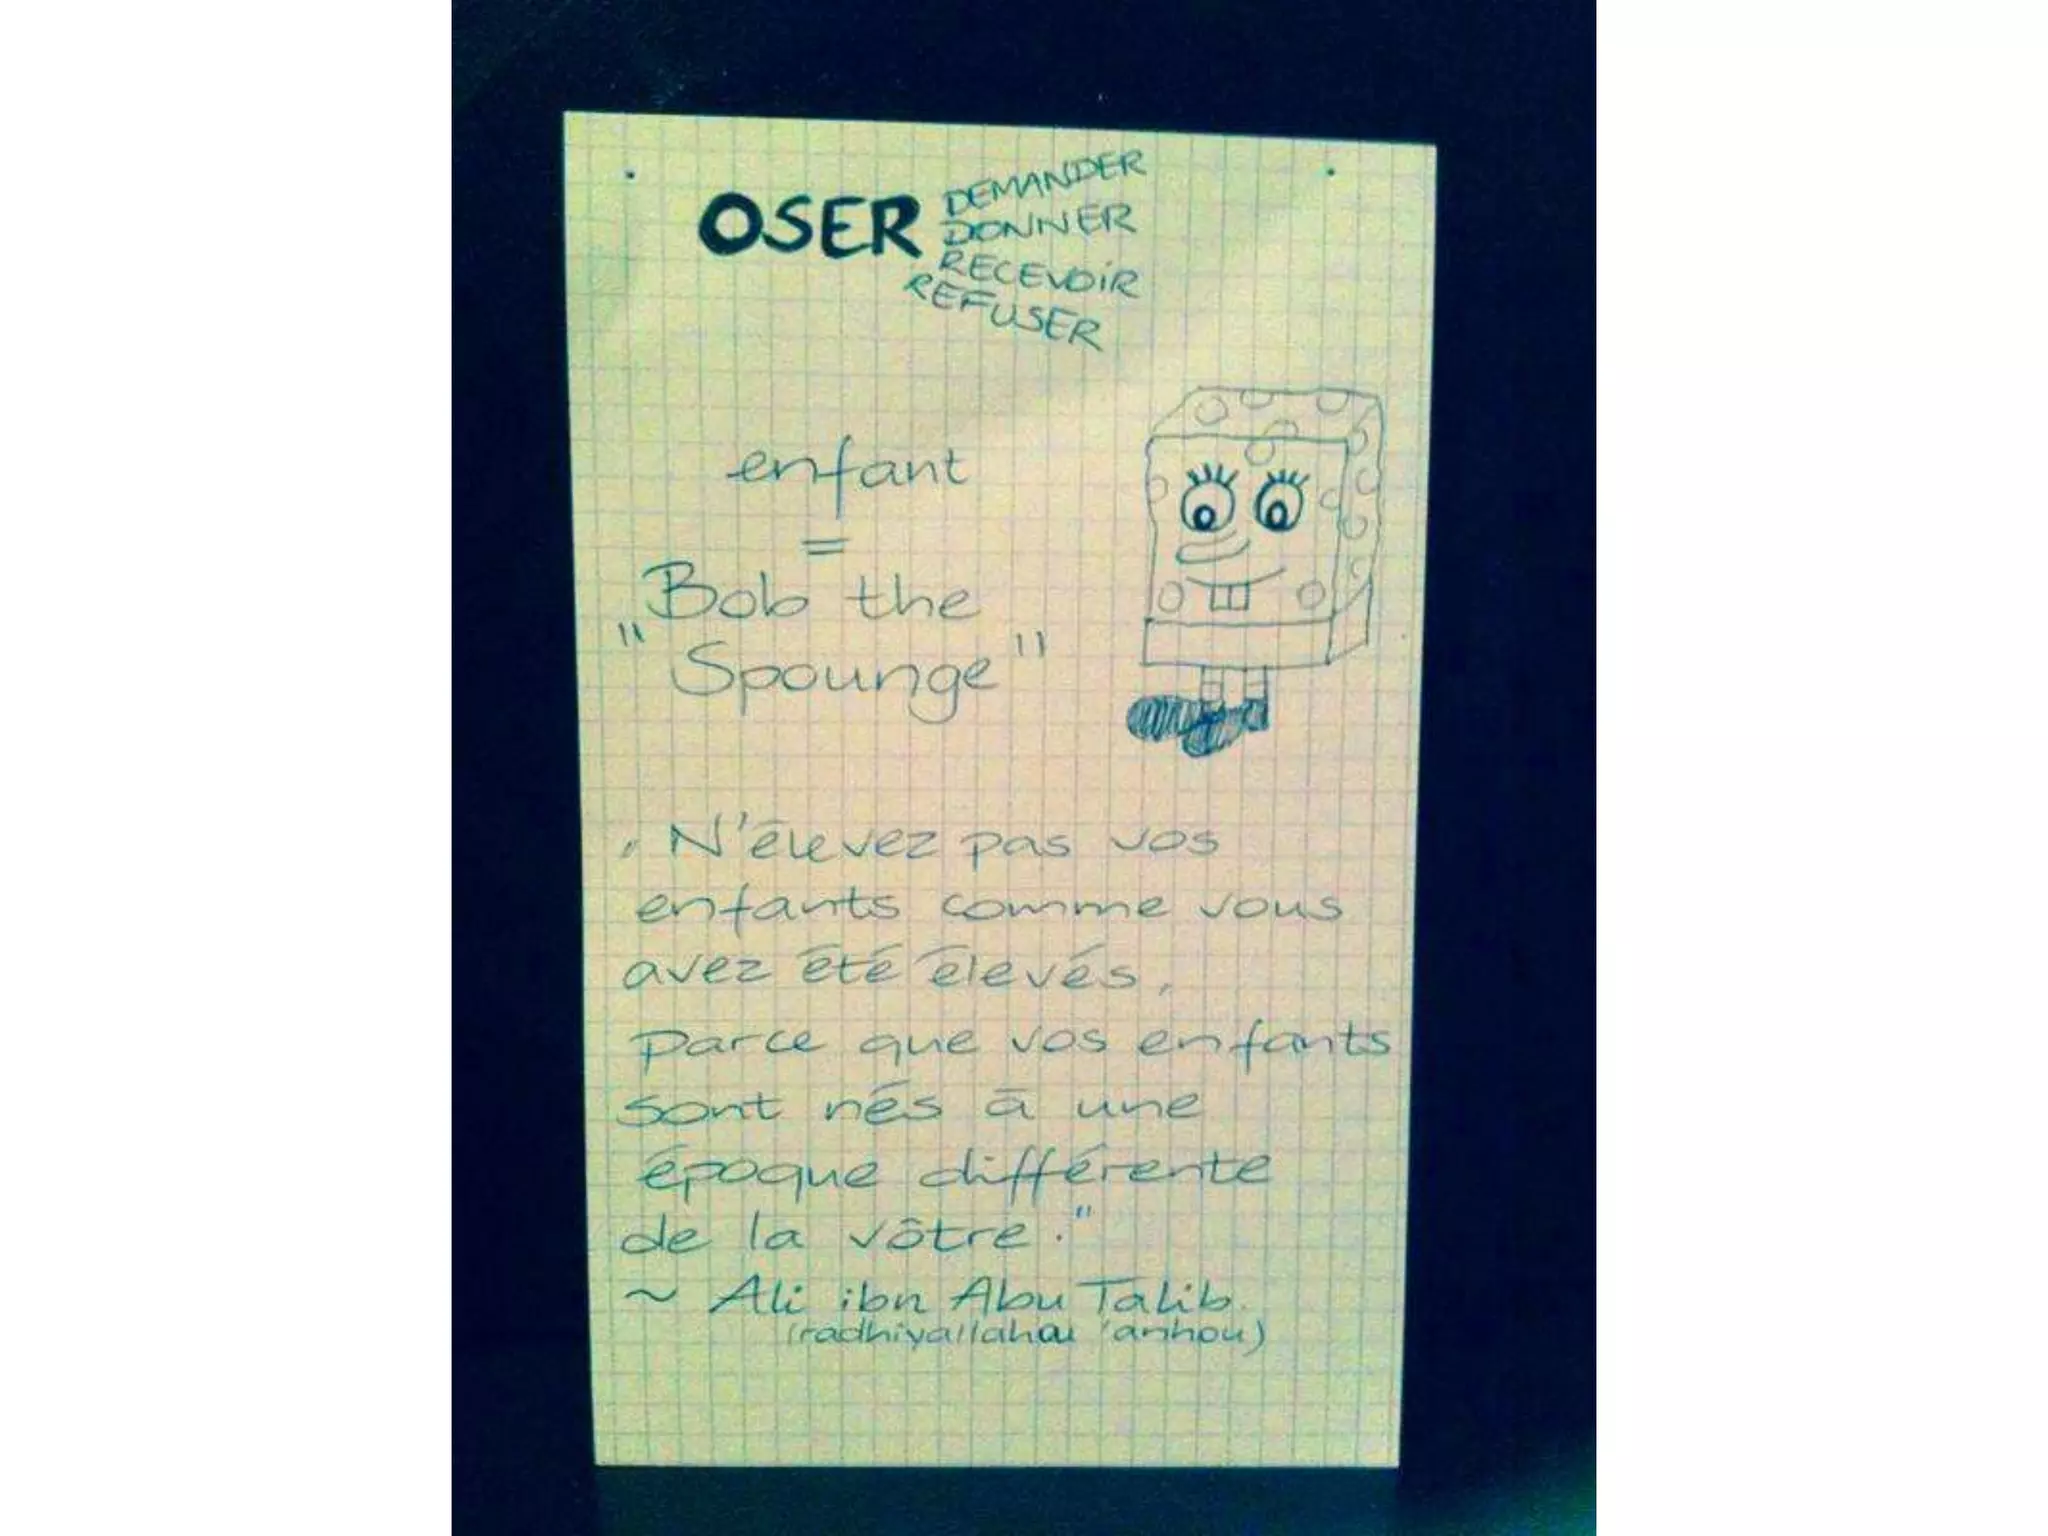 OSER DEMANDER
DONNER
RECEVOIR
REFUSER
enfant
=
"Bob the
Spounge"
"N'élevez pas vos
enfants comme vous
avez été élevés,
parce que vos enfants
sont nés à une
époque différente
de la vôtre."
~ Ali ibn Abu Talib
(radhiyallahou 'anhou)